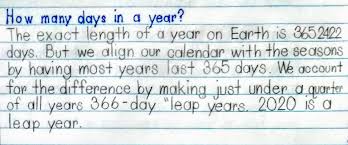 How many days in a year?
The exact length of a year on Earth is 365.2422
days. But we align our calendar with the seasons
by having most years last 365 days. We account
for the difference by making just under a quarter
of all years 366-day "leap years. 2020 is a
leap year.